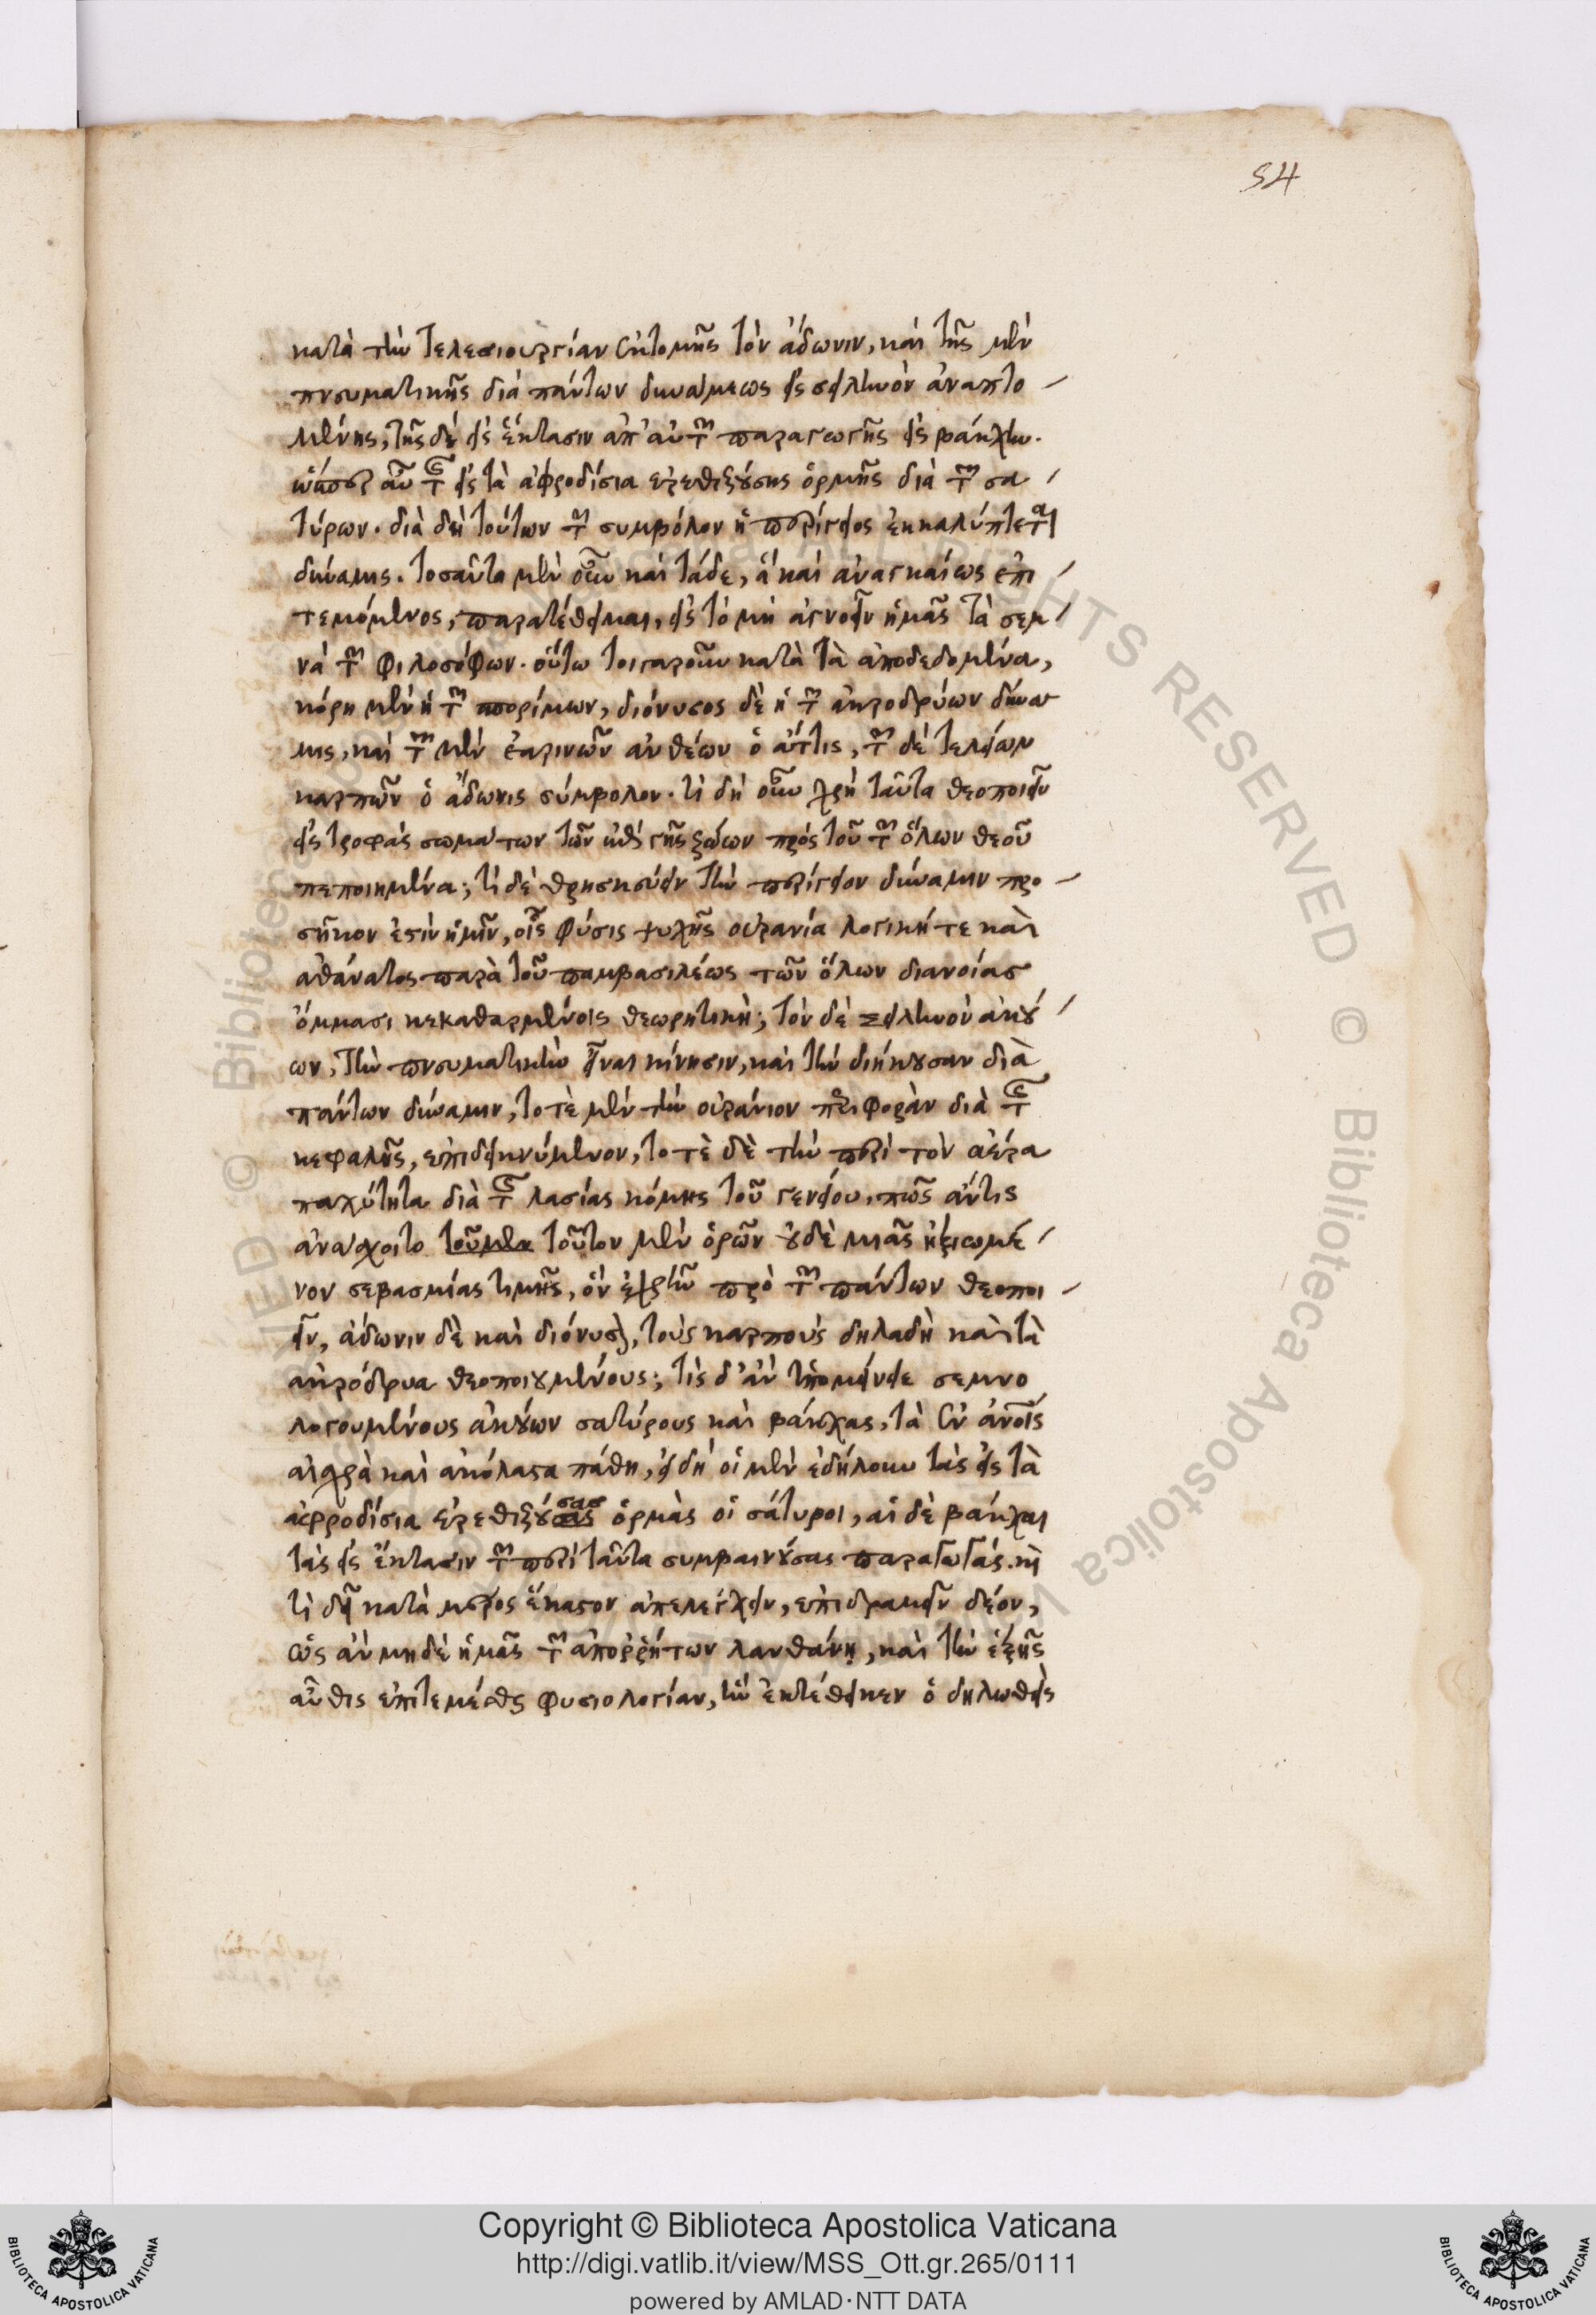 54
κατὰ τὴν τελεσιουργίαν ἐκτομῆς τὸν ἄδωνιν, καὶ τῆς μὲν
πνευματικῆς διὰ πάντων δυνάμεως εἰς σειληνὸν ἀναπτο
μένης, τῆς δὲ εἰς ἔκστασιν ἀπ' αὐτῶν παραγωγῆς εἰς βάκχην.
ὥσπερ αὖ τῆς εἰς τὰ ἀφροδίσια ἐρεθιζούσης ὁρμῆς διὰ τῶν σα
τύρων. διὰ δὴ τούτων τῶν συμβόλον ἡ περίγειος ἐκκαλύπτεται
δύναμις. τοσαῦτα μὲν οὖν καὶ τάδε, ἃ καὶ ἀναγκαίως ἐπι
τεμόμενος, παρατέθειμαι, εἰς τὸ μὴ ἀγνοεῖν ἡμᾶς τὰ σεμ
νά τῶν φιλοσόφων. οὕτω τοιγαροῦν κατὰ τὰ ἀποδεδομένα,
κόρη μὲν ἡ τῶν σπορίμων, διόνυσος δὲ ἡ τῶν ἀκροδρύων δύνα
μις, καὶ τῶν μὲν ἐαρινῶν ἀνθέων ὁ ἄττις, τῶν δὲ τελείων
καρπῶν ὁ ἄδωνις σύμβολον. τί δὴ οὖν χρὴ ταῦτα θεοποιεῖν
εἰς τροφὰς σωμάτων τῶν ἐπὶ γῆς ζώων πρὸς τοῦ τῶν ὅλων θεοῦ
πεποιημένα; τί δὲ θρησκεύειν τὴν περίγειον δύναμιν προ
σῆκον ἐστὶν ἡμῖν, οἷς φύσις ψυχῆς οὐρανία λογική τε καὶ
ἀθάνατος παρὰ τοῦ παμβασιλέως τῶν ὅλων διανοίας
ὄμμασι κεκαθαρμένοις θεωρητικὴ; τὸν δὲ σειληνὸν ἀκού
ων, τὴν πνευματικὴν εἶναι κίνησιν, καὶ τὴν διήκουσαν διὰ
πάντων δύναμιν, τοτὲ μὲν τὴν οὐράνιον περιφορὰν διὰ τῆς
κεφαλῆς, ἐπιδεικνύμενον, τοτὲ δὲ τὴν περὶ τὸν ἀέρα
παχύτητα διὰ τῆς λασίας κόμης τοῦ γενείου, πῶς ἄν τις
ἀνάσχοιτο τοῦμεν τοῦτον μὲν ὁρῶν οὐδὲ μιᾶς ἠξιωμέ
νον σεβασμίας τιμῆς, ὃν ἐχρῆν πρὸ τῶν πάντων θεοποι
εῖν, ἄδωνιν δὲ καὶ διόνυσον, τοὺς καρποὺς δηλαδὴ καὶ τὰ
ἀκρόδρυα θεοποιουμένους; τίς δ' ἂν ὑπομείνειε σεμνο
λογουμένους ἀκούων σατύρους καὶ βάκχας, τὰ ἐν ἀνοῖς
αἰσχρὰ καὶ ἀκόλαστα πάθη, εἰ δὴ οἱ μὲν ἐδήλουν τὰς εἰς τὰ
ἀφροδίσια ἐρεθιζούσας ὁρμὰς οἱ σάτυροι, αἱ δὲ βάκχαι
τὰς εἰς ἔκστασιν τῶν περὶ ταῦτα συμβαινούσας παραγωγάς. καὶ
τί δεῖ κατὰ μέρος ἕκαστον ἀπελέγχειν, ἐπιδραμεῖν δέον,
ὡς ἂν μηδὲ ἡμᾶς τῶν ἀπορρήτων λανθάνῃ, καὶ τὴν ἑξῆς
αὖθις ἐπιτεμέσθαι φυσιολογίαν, ἣν ἐκτέθεικεν ὁ δηλωθεὶς
Copyright © Biblioteca Apostolica Vaticana
http://digi.vatlib.it/view/MSS_Ott.gr.265/0111
powered by AMLAD·NTT DATA